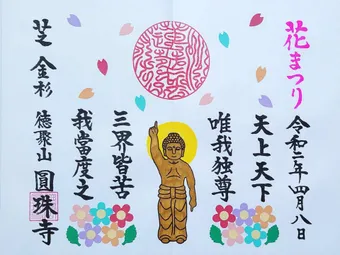 花まつり
令和二年四月八日
天上天下
唯我独尊
三界皆苦
我當度之
徳聚山 圓珠寺
芝 金杉